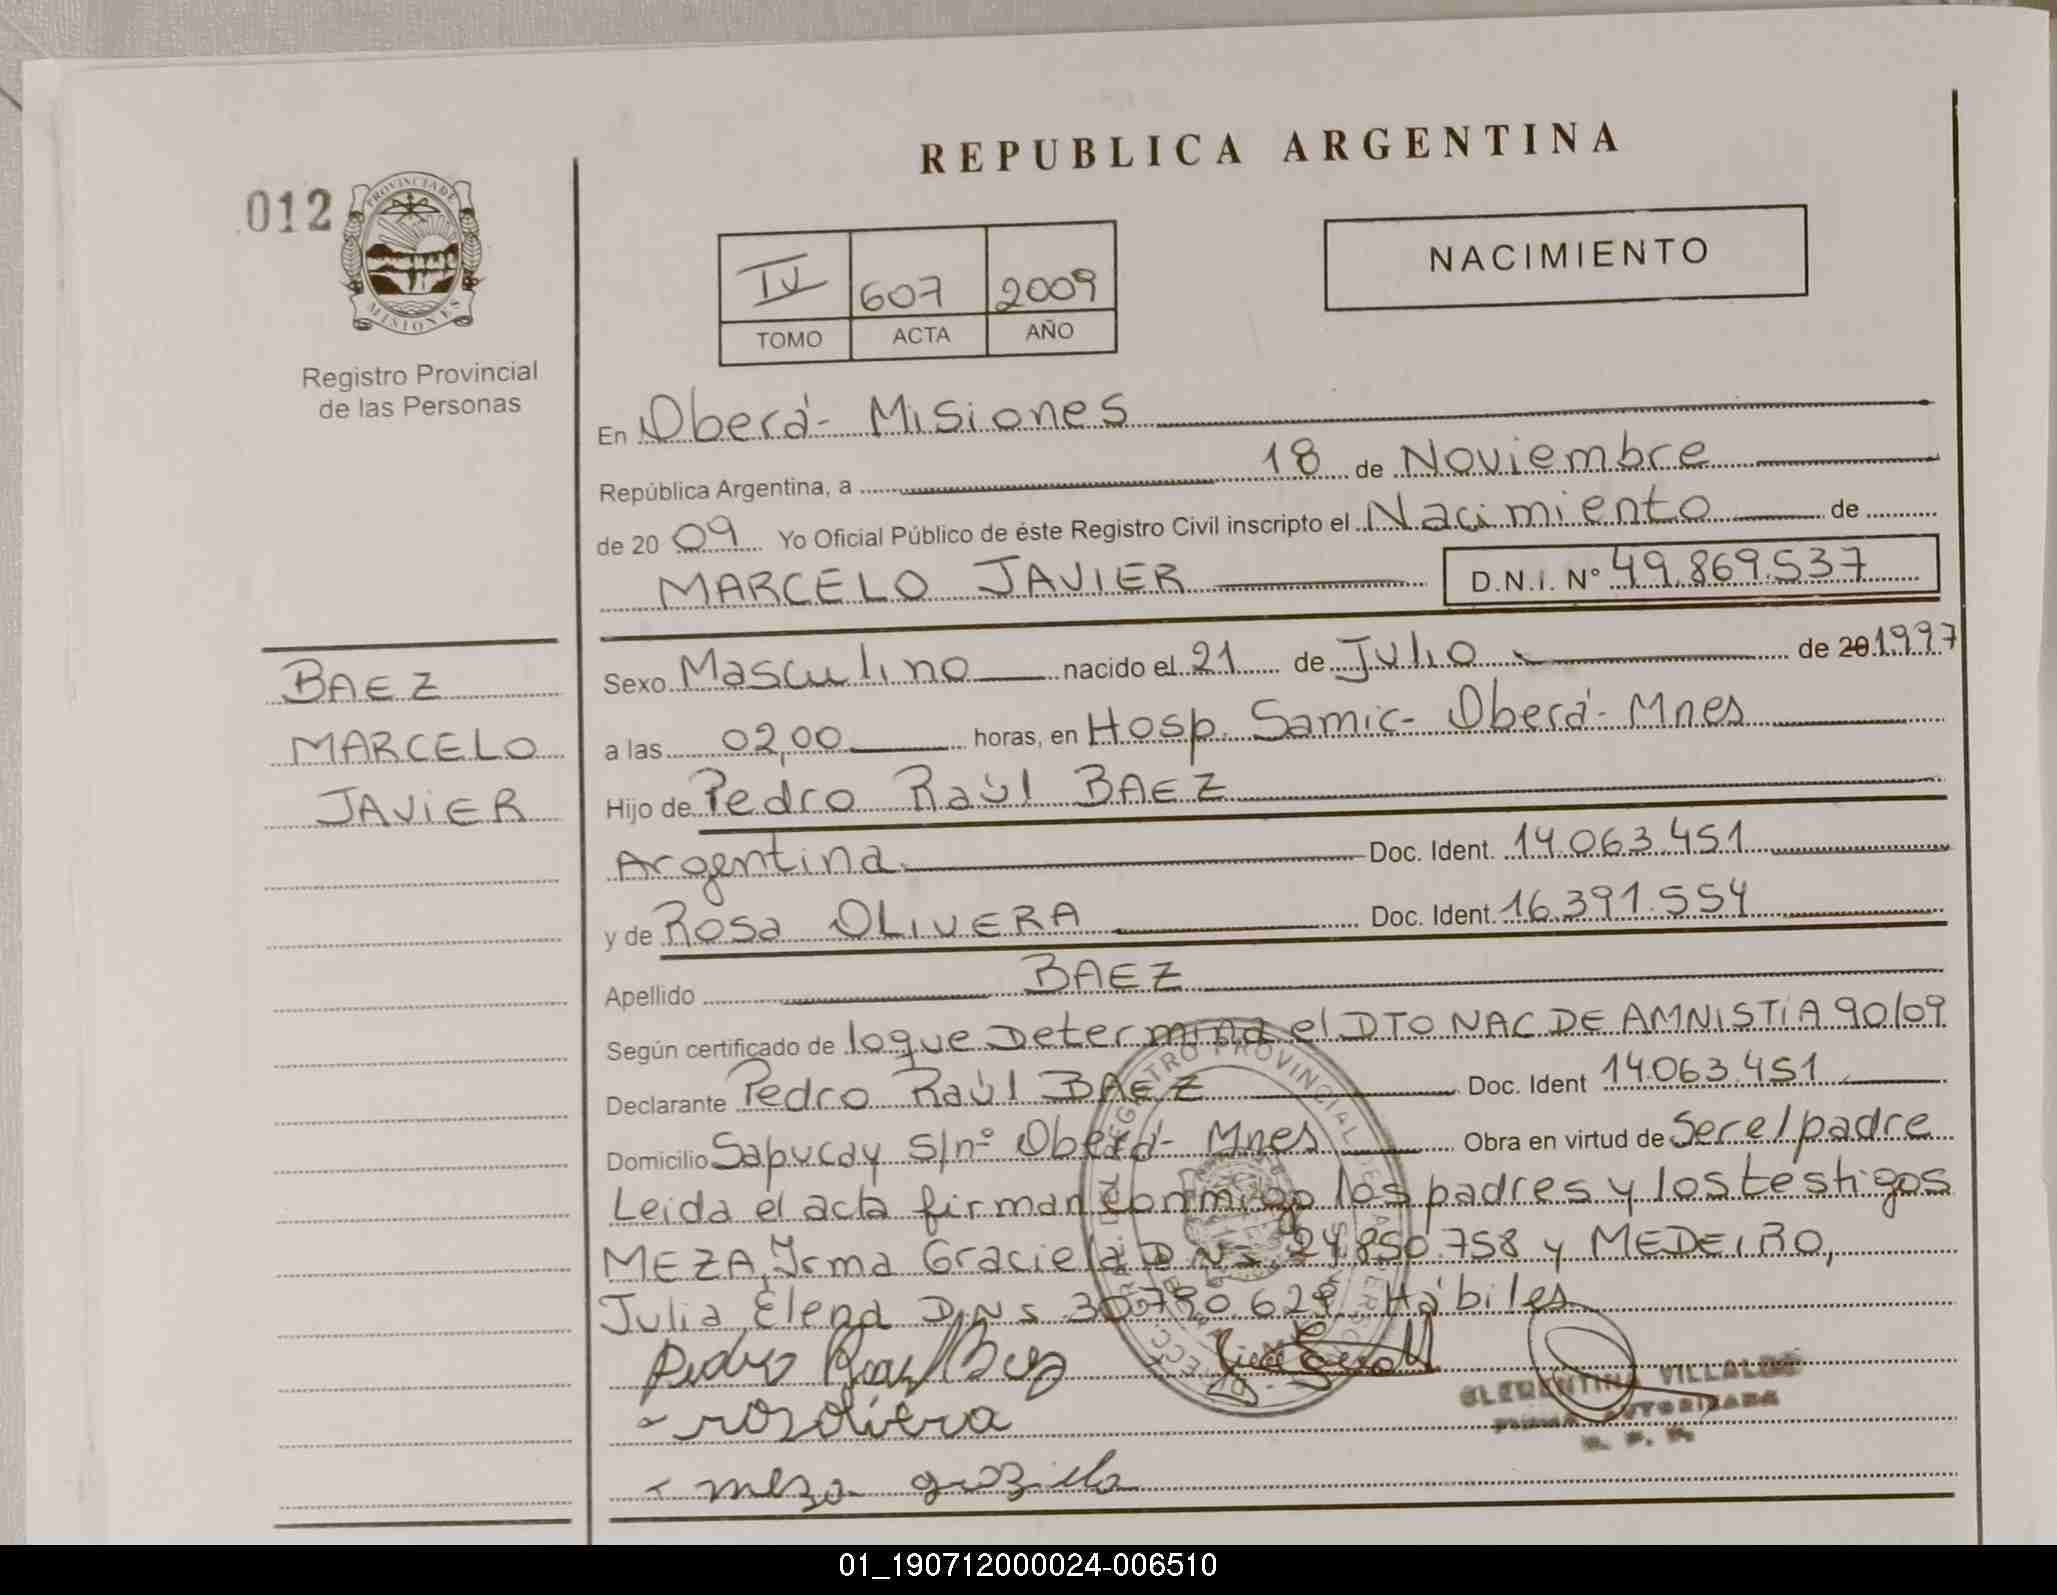 REPUBLICA ARGENTINA
012
PROVINCIA DE
MISIONES
Registro Provincial
de las Personas
NACIMIENTO
IV 607 2009
TOMO ACTA AÑO
En Oberá- Misiones
República Argentina, a 18 de Noviembre
de 20 09 Yo Oficial Público de éste Registro Civil inscripto el Nacimiento de
MARCELO JAVIER D.N.I. Nº 49.869.537
BAEZ
MARCELO
JAVIER
Sexo Masculino nacido el 21 de Julio de 20 1997
a las 02,00 horas, en Hosp. Samic- Oberá- Mnes
Hijo de Pedro Raúl BAEZ
Argentina Doc. Ident. 14.063.451
y de Rosa OLIVERA Doc. Ident. 16.391.554
Apellido BAEZ
Según certificado de loque Determina el DTO NAC DE AMNISTIA 90/09
Declarante Pedro Raúl BAEZ Doc. Ident 14.063.451
Domicilio Sapucay S/nº Oberá- Mnes Obra en virtud de Ser el padre
Leida el acta firman conmigo los padres y los testigos
MEZA, Irma Graciela D.N.I. 24.850.758 y MEDEIRO,
Julia Elena D.N.I. 30.790.629 Hábiles
Pedro Raul Baez
rosa olivera
VILLALBA
AUTORIZADA
R. P. P.
meza graziela
01_190712000024-006510